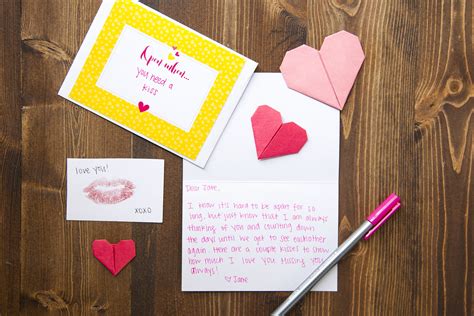 Open when...
you need a
kiss
love you!
xoxo
Dear Zane,
I know it's hard to be apart for so
long, but just know that I am always
thinking of you and counting down
the days until we get to see eachother
again. Here are a couple kisses to show
how much I love you. Missing you
always!
Jane